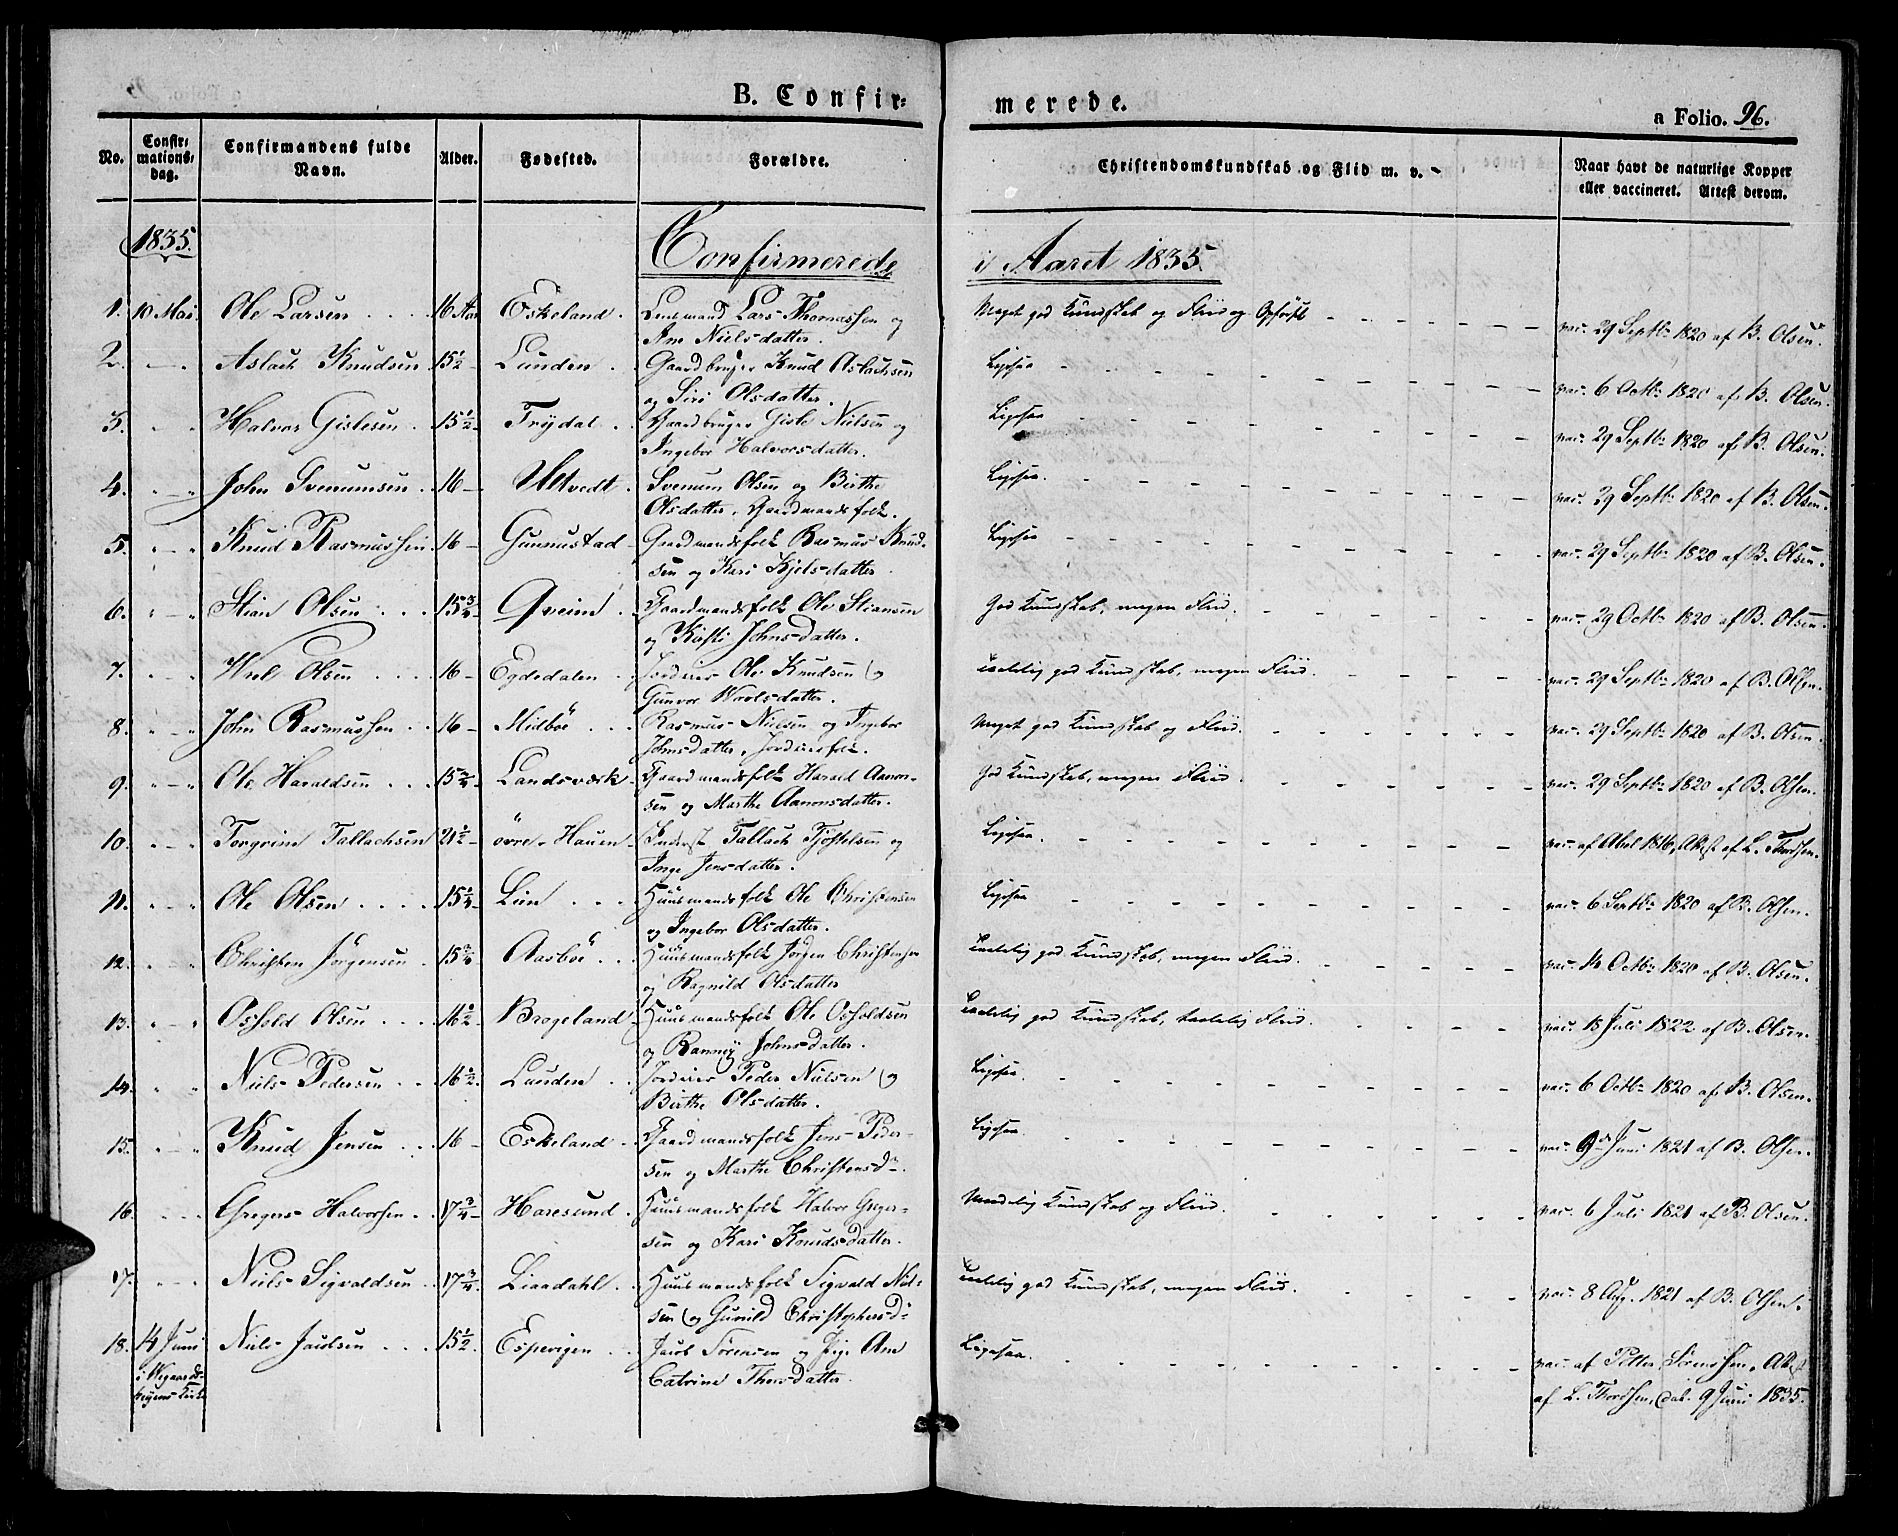 B. Confir=
merede.
a Folio. 96.
No.
Confir=
mations=
dag.
Confirmandens fulde
Navn.
Alder.
Fødested.
Forældre.
Christendomskundskab og Flid m. v.
Naar havt de naturlige Kopper
eller vaccineret. Attest derom.
1835.
Confirmerede
i Aaret 1835.
1. 10 Mai. Ole Larsen 16 Aar Eskeland. Lensmand Lars Thomassen og
Ane Nielsdatter.
Meget god Kundskab og Fliid og Opførsel
vac. 29 Septbr 1820 af B. Olsen.
2. Aslach Knudsen 15½ Lunden Gaardbruger Knud Aslachsen
og Siri Olsdatter.
Ligesaa
vac. 6 Octbr 1820 af B. Olsen.
3. Halvor Gislesen 15½ Trydal Gaardbruger Gisle Nielsen og
Ingebor Halvorsdatter.
Ligesaa
vac. 29 Septbr 1820 af B. Olsen.
4. John Svenumsen 16 Ulltvedt Svenum Olsen og Birthe
Olsdatter, Gaardmandsfolk.
Ligesaa.
vac. 29 Septbr 1820 af B. Olsen.
5. Knud Rasmussen 16 Gunnustad Gaardmandsfolk Rasmus Knud-
sen og Kari Kjelsdatter.
Ligesaa
vac. 29 Septbr 1820 af B. Olsen.
6. Stian Olsen 15¾ Qveim Gaardmandsfolk Ole Stiansen
og Kirsti Johnsdatter.
God Kundskab, megen Fliid.
vac. 29 Octbr 1820 af B. Olsen.
7. Olsen 16 Egdedalen Ole Knudsen og
Gunvor
Temmelig god Kundskab, megen Fliid.
vac. 29 Septbr 1820 af B. Olsen.
8. John Rasmussen 16 Midböe Rasmus Nielsen og Ingebor
Johnsdatter,
Meget god Kundskab og Fliid.
vac. 29 Septbr 1820 af B. Olsen.
9. Ole Haraldsen 15¾ Landsværk Gaardmandsfolk Harald Aanon-
sen og Marthe Aanonsdatter.
God Kundskab, megen Fliid.
vac. 29 Septbr 1820 af B. Olsen.
10. Torgrim Tallachsen 21½ övre Hauen Inderst Tallach Tjöstelsen og
Inge Jensdatter.
Ligesaa.
vac. af Abel 1816, Attest af L. Thordsen.
11. Ole Olsen 15¼ Lien Huusmandsfolk Ole Christensen
og Ingebor Olsdatter.
Ligesaa
vac. 6 Septbr 1820 af B. Olsen.
12. Christen Jörgensen 15¾ Aasböe Huusmandsfolk Jörgen Christensen
og Ragnild Olsdatter
god Kundskab, megen Fliid.
vac. 14 Octbr 1820 af B. Olsen.
13. Osfold Olsen 16½ Brogeland Huusmandsfolk Ole Osfoldsen
og Rannei Johnsdatter.
god Kundskab, Fliid.
vac. 18 Juli 1822 af B. Olsen.
14. Niels Pedersen 16½ Lunden Peder Nielsen og
Birthe Olsdatter.
Ligesaa.
vac. 6 Octbr 1820 af B. Olsen.
15. Knud Jensen 16 Eskeland Gaardmandsfolk Jens Peder-
sen og Marthe Christensdr.
Ligesaa.
vac. 9de Juni 1821 af B. Olsen.
16. Gregers Halvorsen 17¾ Haresund. Huusmandsfolk Halvor Greger-
sen og Kari Knudsdatter.
Maadelig Kundskab og Fliid.
vac. 6 Juli 1821 af B. Olsen.
17. Niels Sigvaldsen 17¾ Liaadahl Huusmandsfolk Sigvald Niel-
sen og Gunild Christophersdr
god Kundskab, megen Fliid.
vac. 8 Aug. 1821 af B. Olsen.
18. 14 Juni Niels Jacobsen 15½ Espevigen Jacob Sörensen og Ane
Catrine Thorsdatter.
i Wegaards-
heyens Kirke
Ligesaa.
vac. af Petter Sörensen, Attest
af L. Thordsen, dat. 9 Juni 1835.